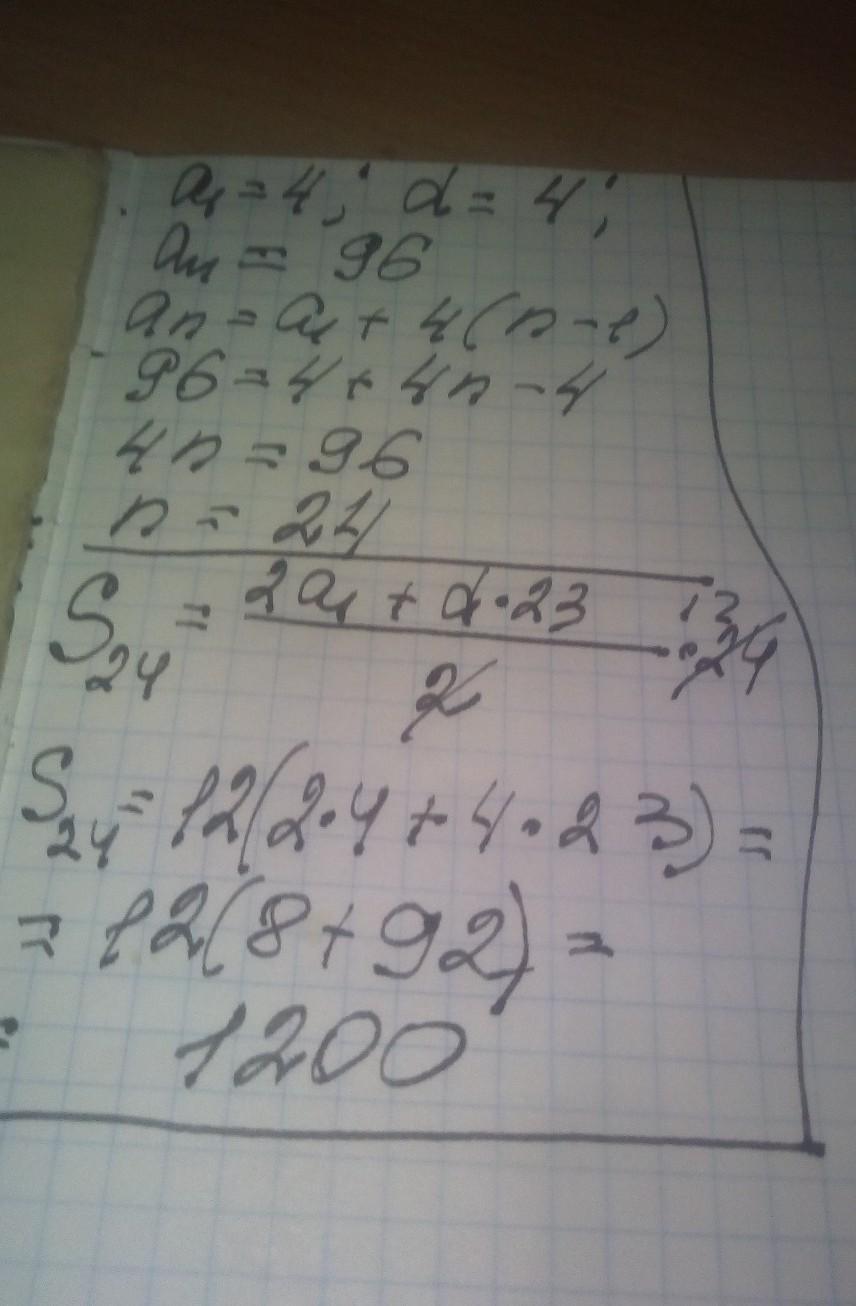 a₁ = 4; d = 4;
aₙ = 96
aₙ = a₁ + 4(n - 1)
96 = 4 + 4n - 4
4n = 96
n = 24
S₂₄ = (2a₁ + d·23)/2 · 24 12
S₂₄ = 12(2·4 + 4·23) =
= 12(8 + 92) =
= 1200